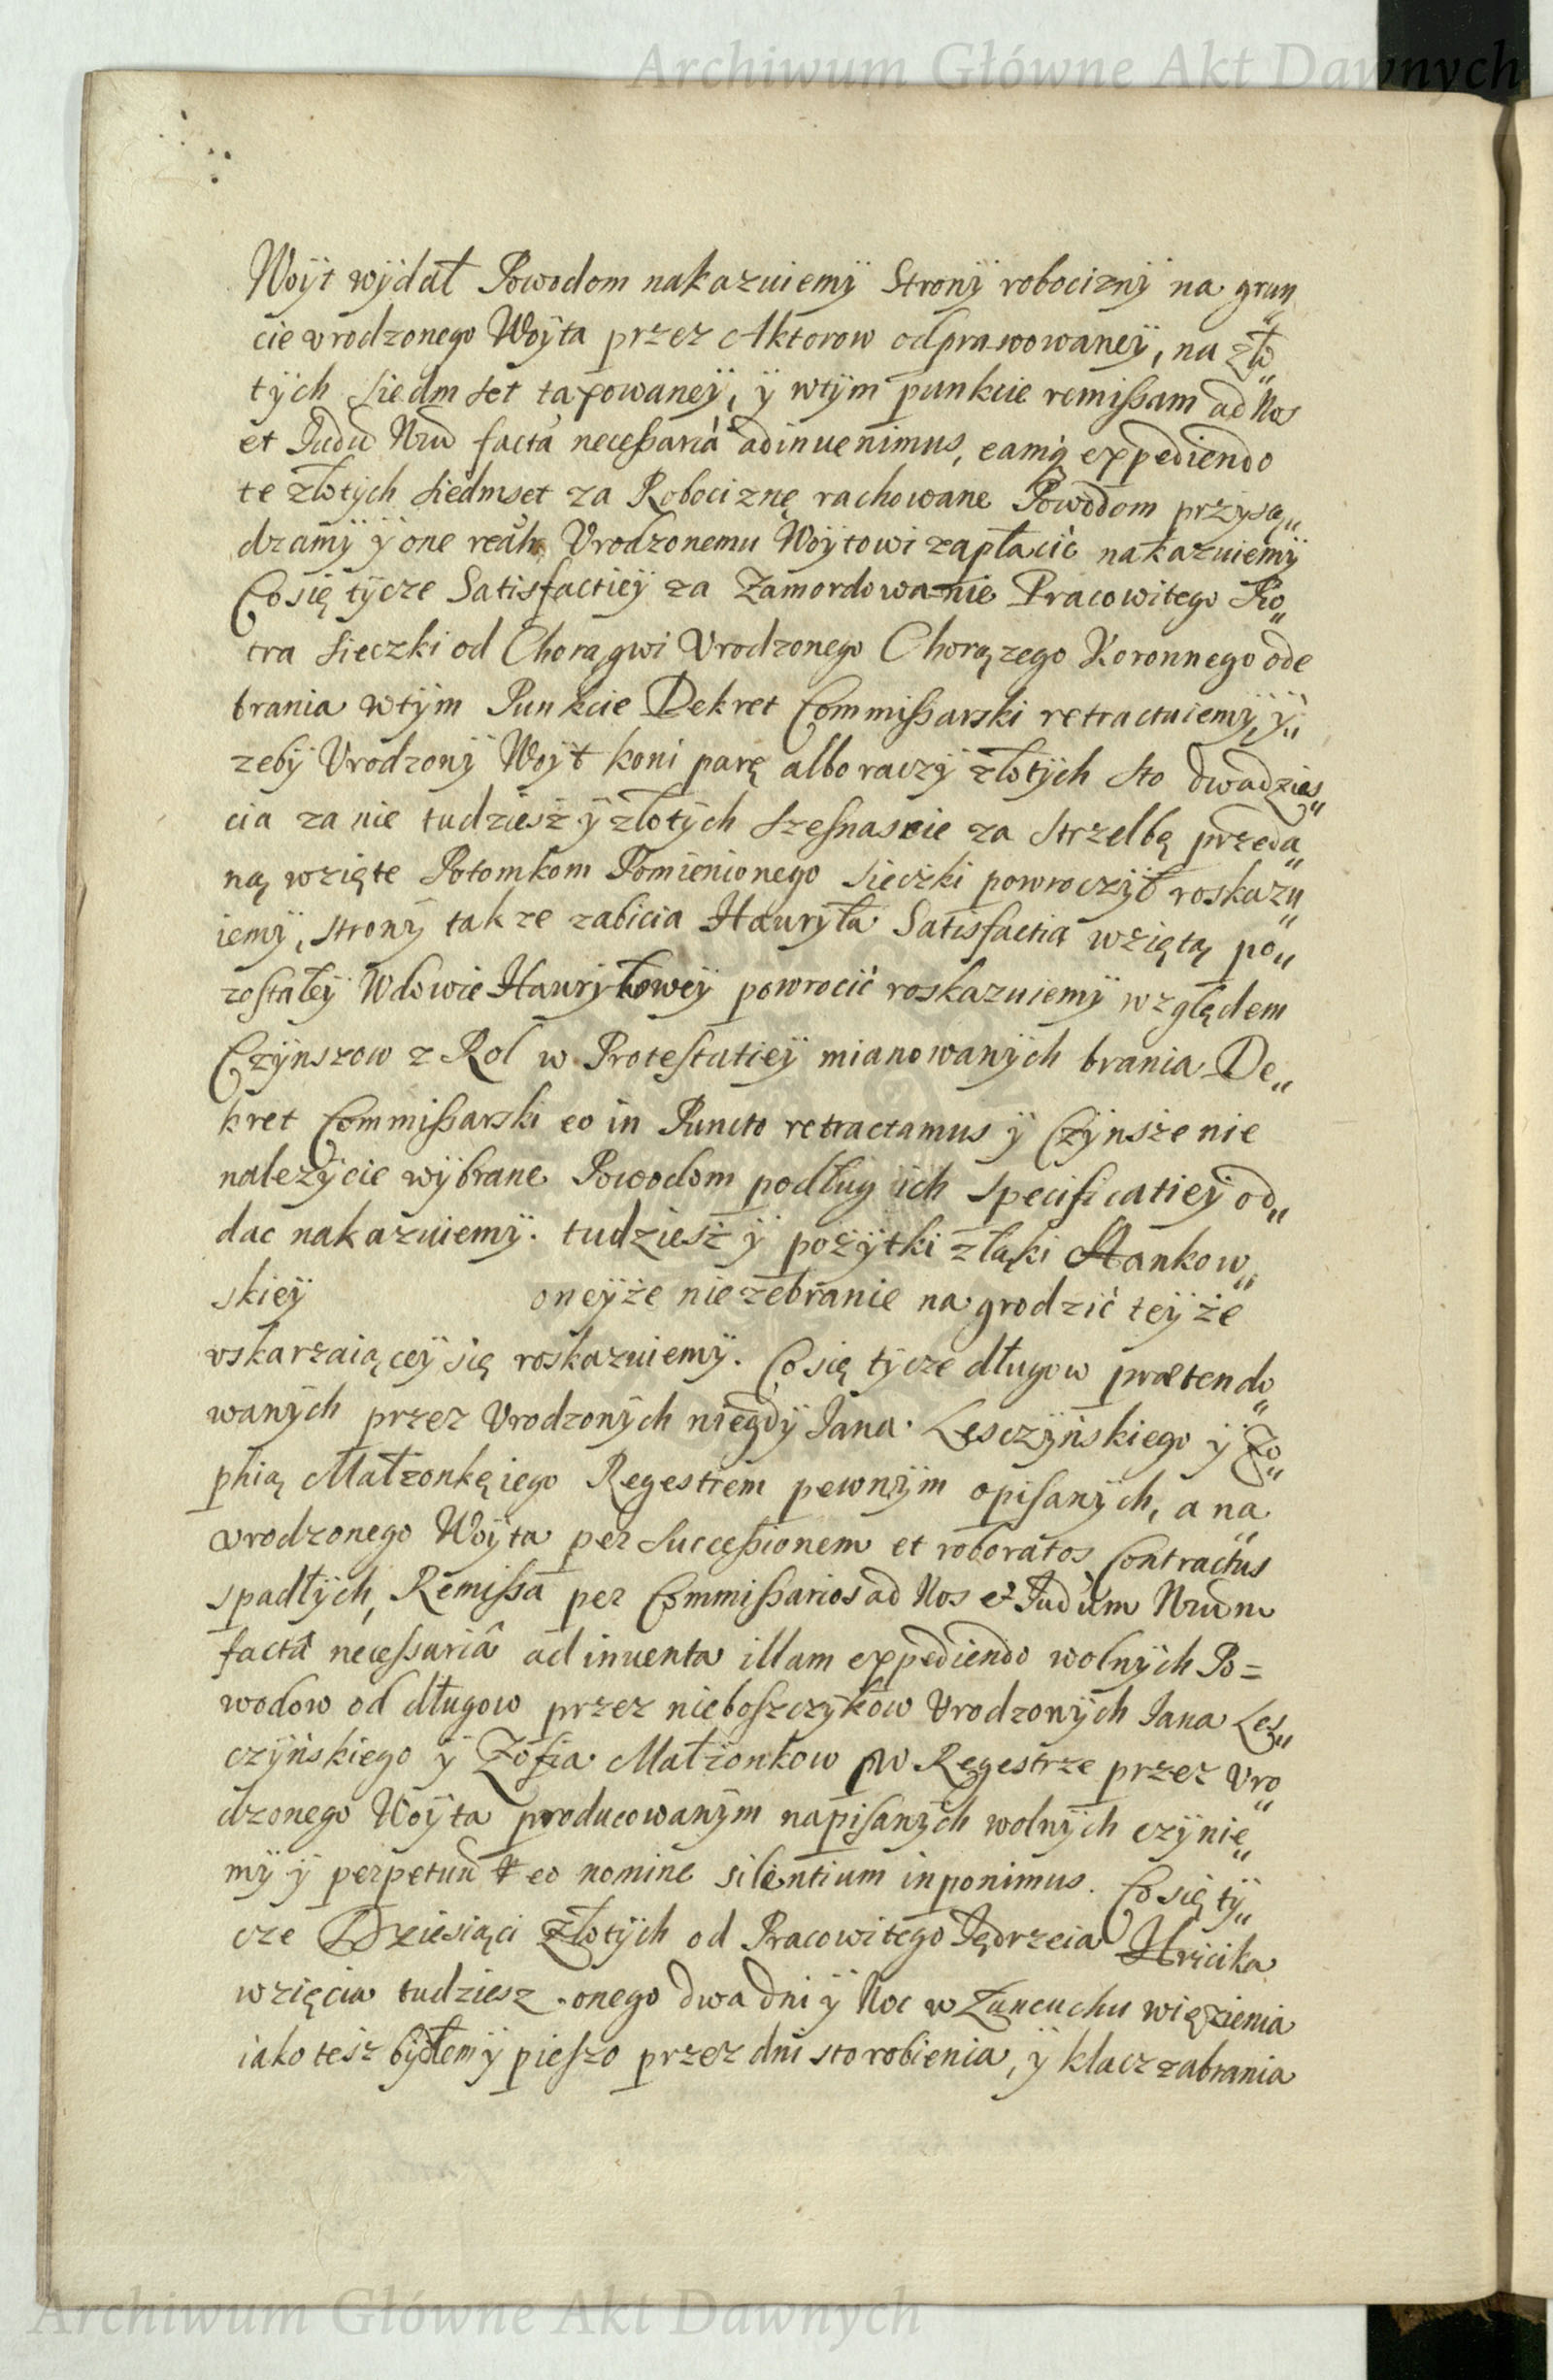 Archiwum Główne Akt Dawnych
Woÿt wÿdał Powodom nakazuiemÿ Stronÿ robociznÿ na grun„
cie vrodzonego Woÿta przez Aktorow odprawowaneÿ, na zło„
tÿch siedm set taxowaneÿ, ÿ wtÿm punkcie remißam ad Nos
et Judũ Nrũ factã neceßariã adinuenimus, eamq̃ expediendo
te złotÿch siedmset za Robociznę rachowane Powodom przÿsą„
dzamÿ ÿ one Vrodzonemu Woÿtowi zapłacić nakazuiemÿ
Co się tÿcze Satisfactieÿ za Zamordowanie Pracowitego Pio„
tra Sieczki od Chorągwi Vrodzonego Chorązego Koronnego ode
brania wtÿm Punkcie Dekret Commißarski retractuiemÿ, ÿ„
zebÿ Vrodzonÿ Woÿt koni parę albo raczÿ złotÿch sto dwadzies„
cia za nie tudziesż ÿ złotÿch szesnascie za Strzelbę przeda„
ną wzięte Potomkom Pomienionego Sieczki powroczÿł roskazu„
iemÿ, stronÿ takze zabicia Hauryła Satisfactią wziętą po„
zostałeÿ Wdowie Haurÿłoweÿ powrocić roskazuiemÿ względem
Czÿnszow z Rol w Protestatieÿ mianowanÿch brania De„
kret Commißarski eo in Puncto retractamus ÿ Czÿnsże nie
należÿcie wÿbrane Powodom podług ich Specificatieÿ od„
dac nakazuiemÿ. tudziesż ÿ pożÿtki z łąki Stankow„
skieÿ oneÿże niezebranie nagrodzić teÿże
vskarzaiąceÿ się roskazuiemÿ. Co się tÿcze długow prætendo„
wanÿch przez Vrodzonÿch niegdÿ Jana Lesczÿńskiego ÿ Zo„
phią Małzonkę iego Regestrem pewnÿm opisanÿch, a na
vrodzonego Woÿta per Succeßionem et roboratos Contractus
spadłÿch, Remißa per Commißarios ad Nos et Judũm Nrũm
factâ neceßariâ adinuenta illam expediendo wolnÿch Po=
wodow od długow przez nieboszczÿkow Vrodzonÿch Jana Les„
czÿńskiego ÿ Zofia Małżonkow w Regestrze przez Vro„
dzonego Woÿta producowanÿm napisanÿch wolnÿch czÿnie„
mÿ ÿ perpetuũ eo nomine silentium inponimus. Co się tÿ„
cze Dziesiąci Złotÿch od Pracowitego Jędrzeia Hricika
wzięcia tudziesz onego dwa dni ÿ Noc w Łancuchu więzienia
iako tesz bÿdłem ÿ pieszo przez dni sto robienia, ÿ klacz zabrania
Archiwum Główne Akt Dawnych